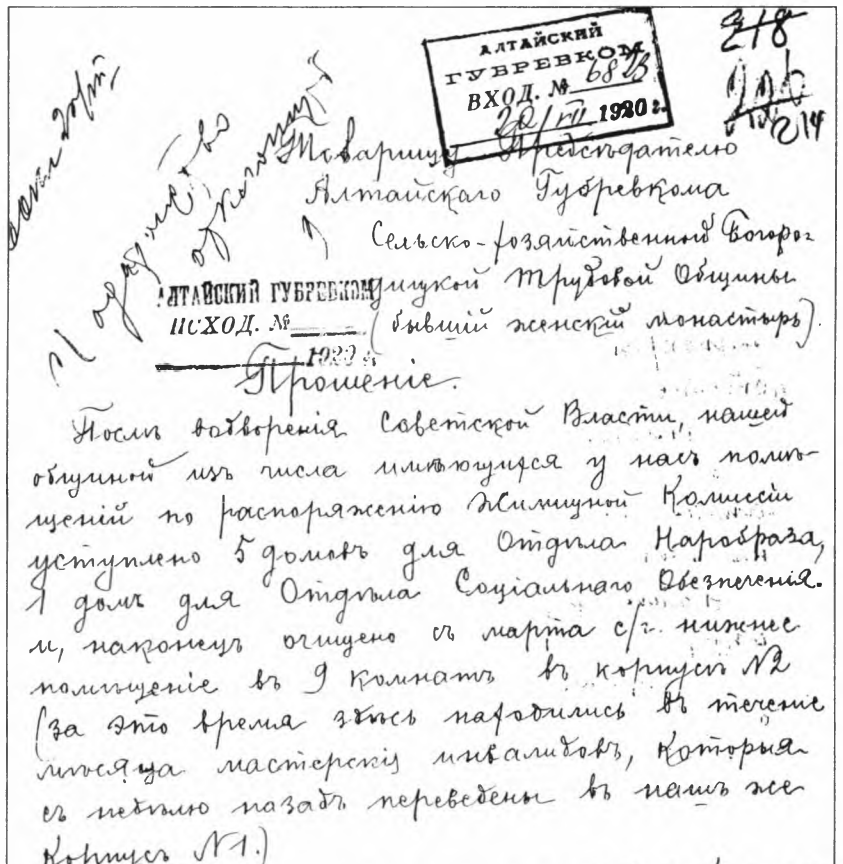 АЛТАЙСКИЙ
ГУБРЕВКОМ
ВХОД. №
20/VII 1920 г.
218
214
Товарищу Предсѣдателю
Алтайскаго Губревкома
Сельско-хозяйственной Богоро-
дицкой Трудовой Общины
(бывшій женскій монастырь).
АЛТАЙСКИЙ ГУБРЕВКОМ
ИСХОД. №
1920 г.
Прошеніе.
Послѣ водворенія Совѣтской Власти, нашей
общиной изъ числа имѣющихся у насъ помѣ-
щеній по распоряженію Жилищной Комиссіи
уступлено 5 домовъ для Отдѣла Наробраза,
1 домъ для Отдѣла Соціальнаго Обезпеченія.
и, наконецъ очищено съ марта с/г. нижнее
помѣщеніе въ 9 комнатъ въ корпусѣ №2
(за это время здѣсь находились въ теченіе
мѣсяца мастерскія инвалидовъ, которыя
съ недѣлю назадъ переведены въ нашъ же
Корпусъ №1.)